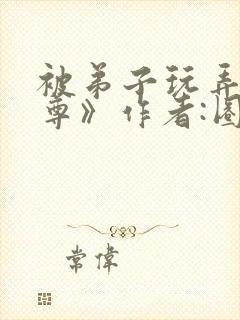 被弟子玩弄
尊》作者:圈
常偉